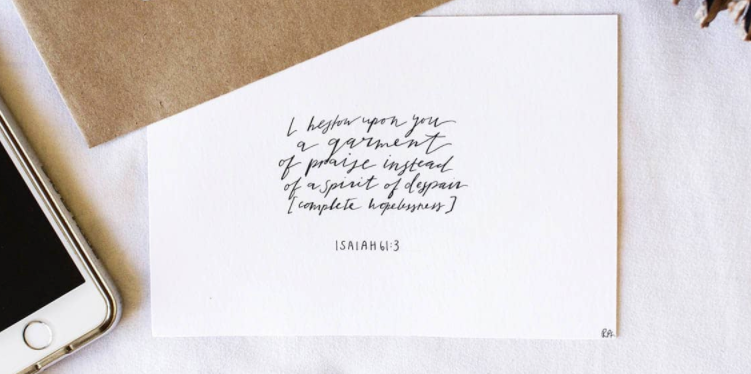 I bestow upon you
a garment
of praise instead
of a spirit of despair
[complete hopelessness]
ISAIAH 61:3
RA.